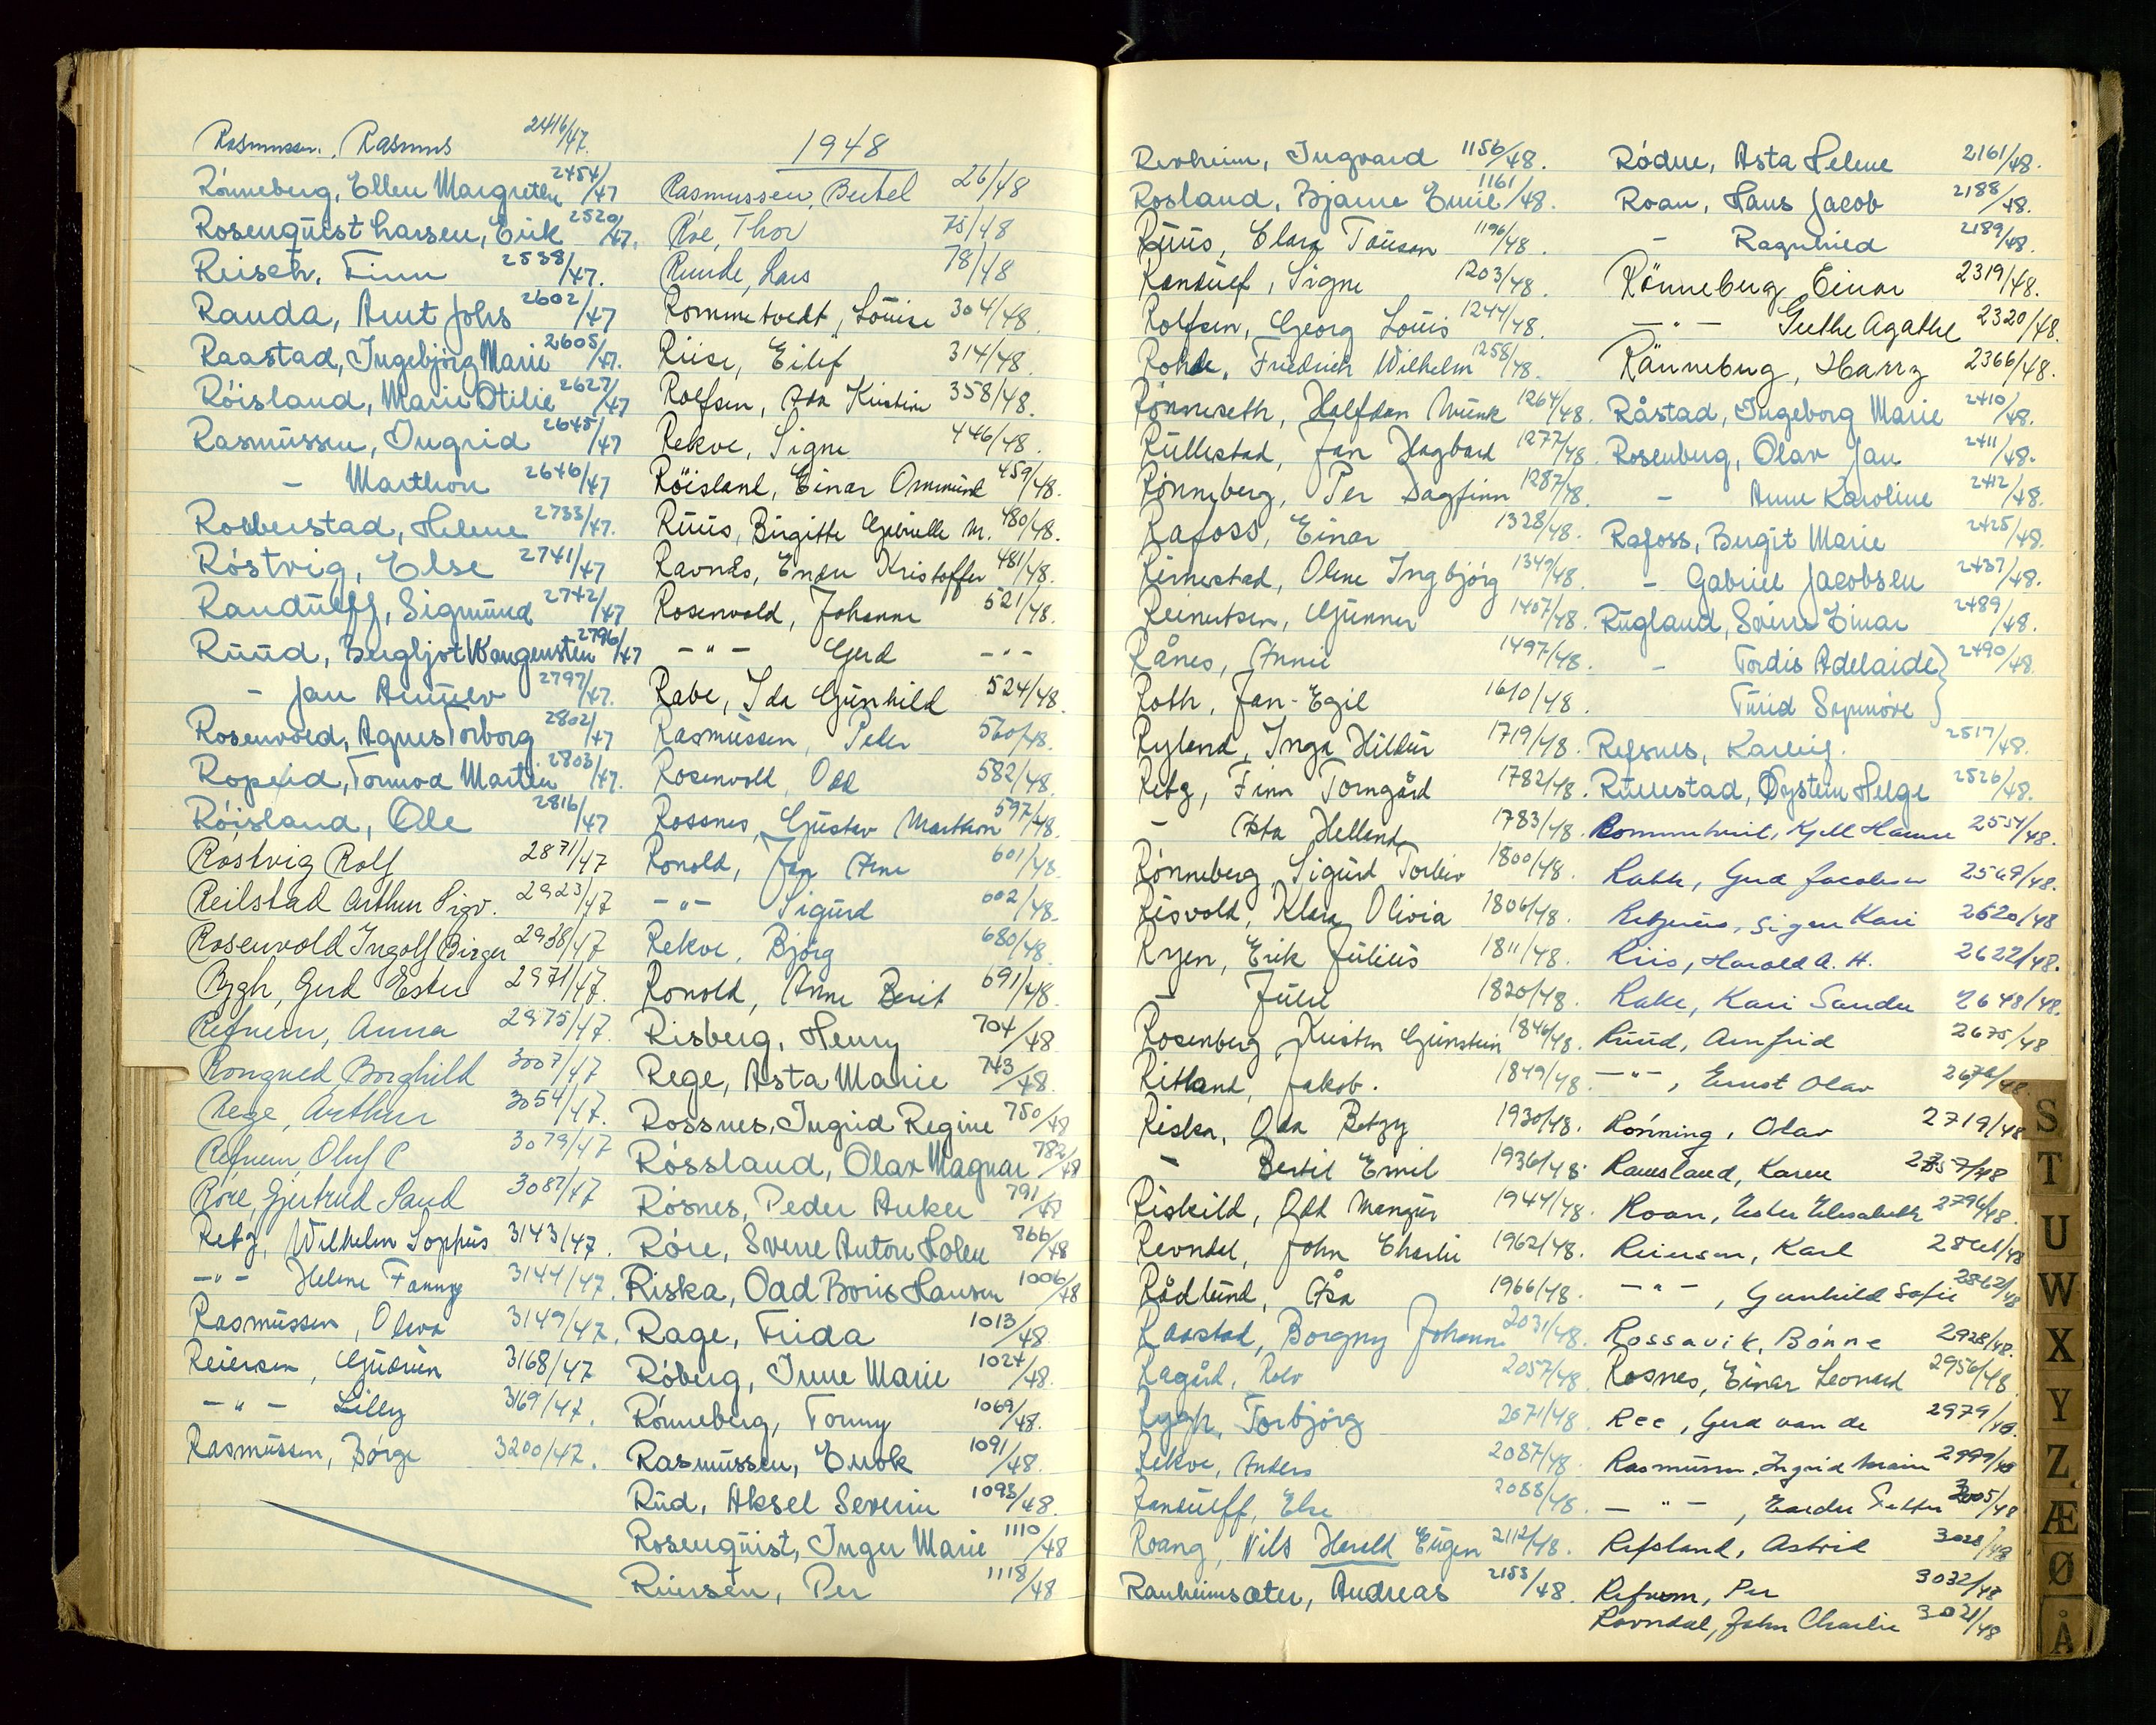 Rasmussen, Rasmus 2416/47.
Rónneberg, Ellen Margrethe 2454/47
Rosenqüist Larsen, Erik 2520/47.
Reisch, Finn 2538/47.
Randa, Arnt Johs 2602/47
Raastad, Ingebjörg Marie 2605/47.
Róisland, Marie Otilie 2627/47
Rasmüssen, Ingrid 2645/47
- Marthon 2646/47
Robberstad, Helene 2733/47.
Róstvig, Else 2741/47
Randülff, Sigmünd 2742/47
Rüüd, Bergljot Wangensten 2796/47
- Jan 2797/47.
Rosenvold, Agnes Torborg 2802/47
Ropeid, Tormod Martin 2803/47.
Róisland, Ole 2816/47
Róstvig Rolf 2871/47
Reilstad Arthur Sigv. 2923/47
Rosenvold Ingolf Birger 2938/47
Rygh, Gerd Ester 2971/47.
Refnem, Anna 2975/47.
Rongved Borghild 3007/47
Rege, Arthur 3054/47.
Refnem, Oluf C 3079/47
Róre, Gjertrud Sand 3087/47
Retz, Wilhelm Sophüs 3143/47.
-"- Helene Fanny 3144/47.
Rasmüssen, Olava 3149/47.
Reiersen, Güdrün 3168/47
-"- Lilly 3169/47.
Rasmüssen, Börge 3200/47.
1948
Rasmussen, Bertel 26/48
Róe, Thor 75/48
Runde, Lars 78/48
Rommetvedt, Louise 304/48.
Riise, Eilif 314/48.
Rolfsen, Ada Kristine 358/48.
Rekve, Signe 446/48.
Röisland, Einar Ommünd 459/48.
Rüüs, Birgitte Gabrielle M. 480/48.
Ravnås, Endre Kristoffer 481/48.
Rosenvold, Johanne 521/48.
-"- Gerd -"-
Rabe, Ida Günhild 524/48.
Rasmüssen, Peder 560/48.
Rosenvold, Odd 582/48.
Rossnes, Güstav Marthon 597/48.
Ronold, Jan Arne 601/48.
-"- Sigürd 602/48.
Rekve, Bjórg 680/48.
Ronold, Anne Berit 691/48.
Risberg, Henry 704/48
Rege, Asta Marie 743/48.
Rossnes, Ingrid Regine 750/48
Róssland, Olav Magnar 782/48
Rósnes, Peder Anker 791/48
Róre, Sverre Anton Holen 866/48
Riska, Odd Boris Hansen 1006/48
Rage, Frida 1013/48.
Róberg, Inne Marie 1024/48.
Rónneberg, Tonny 1069/48.
Rasmüssen, Enok 1091/48.
Rüd, Aksel Severin 1093/48.
Rosenqüist, Inger Marie 1110/48
Riiersen, Per 1118/48
Revheim, Ingvard 1156/48.
Rosland, Bjarne Emil 1161/48.
Rüüs, Clara Toüsen 1196/48.
Randülf, Signe 1203/48.
Rolfsen, Georg Loüis 1244/48.
Rohde, Friedrich Wilhelm 1258/48.
Rónneseth, Halfdan Münk 1264/48.
Rüllestad, Jan Hagbard 1277/48.
Rónneberg, Per Dagfinn 1287/48.
Rafoss, Einar 1328/48.
Rimestad, Olene Ingbjórg 1349/48.
Reinertsen, Günnar 1407/48.
Rånes, Annie 1497/48.
Roth, Jan-Egil 1610/48.
Ryland, Inga Hildür 1719/48.
Retz, Finn Torngård 1782/48.
- Asta Helland 1783/48.
Rónneberg, Sigürd Torleiv 1800/48.
Risvold, Klara Olivia 1806/48.
Ryen, Erik Jülius 1811/48.
- Jülie 1820/48.
Rosenberg, Kristen Günstein 1846/48.
Ritland, Jakob. 1849/48.
Riska, Oda Betzy 1930/48.
- Bertil Emil 1936/48.
Riskild, Odd Mangür 1944/48.
Revndal, John Charlie 1962/48.
Rådlünd, Åsa 1966/48.
Raastad, Borgny Johanne 2031/48.
Ragård, Rolv 2057/48.
Rygh, Torbjörg 2071/48.
Rekve, Anders 2087/48.
Randülff, Else 2088/48.
Roang, Nils Harald Eügen 2112/48.
Ranheimsæter, Andreas 2153/48.
Ródne, Asta Helene 2161/48.
Roan, Hans Jacob 2188/48.
- Ragnhild 2189/48.
Rönneberg Einar 2319/48.
-"- Grethe Agathe 2320/48.
Rånneberg, Harry 2366/48.
Råstad, Ingeborg Marie 2410/48.
Rosenberg, Olav Jan 2411/48.
- Anne Karoline 2412/48.
Rafoss, Bergit Marie 2425/48.
- Gabriel Jacobsen 2437/48.
Rügland, Sverre Einar 2489/48.
- Tordis Adelaide } 2490/48.
Türid Synnóve }
Refsnes, Karleif. 2517/48.
Rüllestad, Øystein Helge 2526/48.
Rommetveit, Kjell Hanne 2554/48.
Rabbe, Gerd Jacobsen 2569/48.
Retzius, Signe Kari 2620/48
Riis, Harald A. H. 2622/48.
Rake, Kari Sandve 2648/48.
Rüüd, Arnfrid 2675/48
-"-, Ernst Olav 2676/48
Rónning, Olav 2719/48
Ramsland, Karen 2757/48
Roan, Ester Elisabeth 2796/48.
Reiersen, Karl 2861/48
-"-, Gunhild Sofie 2862/48
Rossavik, Bónne 2928/48.
Rosnes, Einar Leonard 2956/48.
Ree, Gerd van de 2979/48.
Rasmussen, Ingrid Marie 2999/48
-"-, 3005/48
Refsland, Astrid 3028/48
Refnem, Per 3032/48
Rovndal, John Charlie 3021/48
S
T
U
W
X
Y
Z.
Æ
Ø
Å